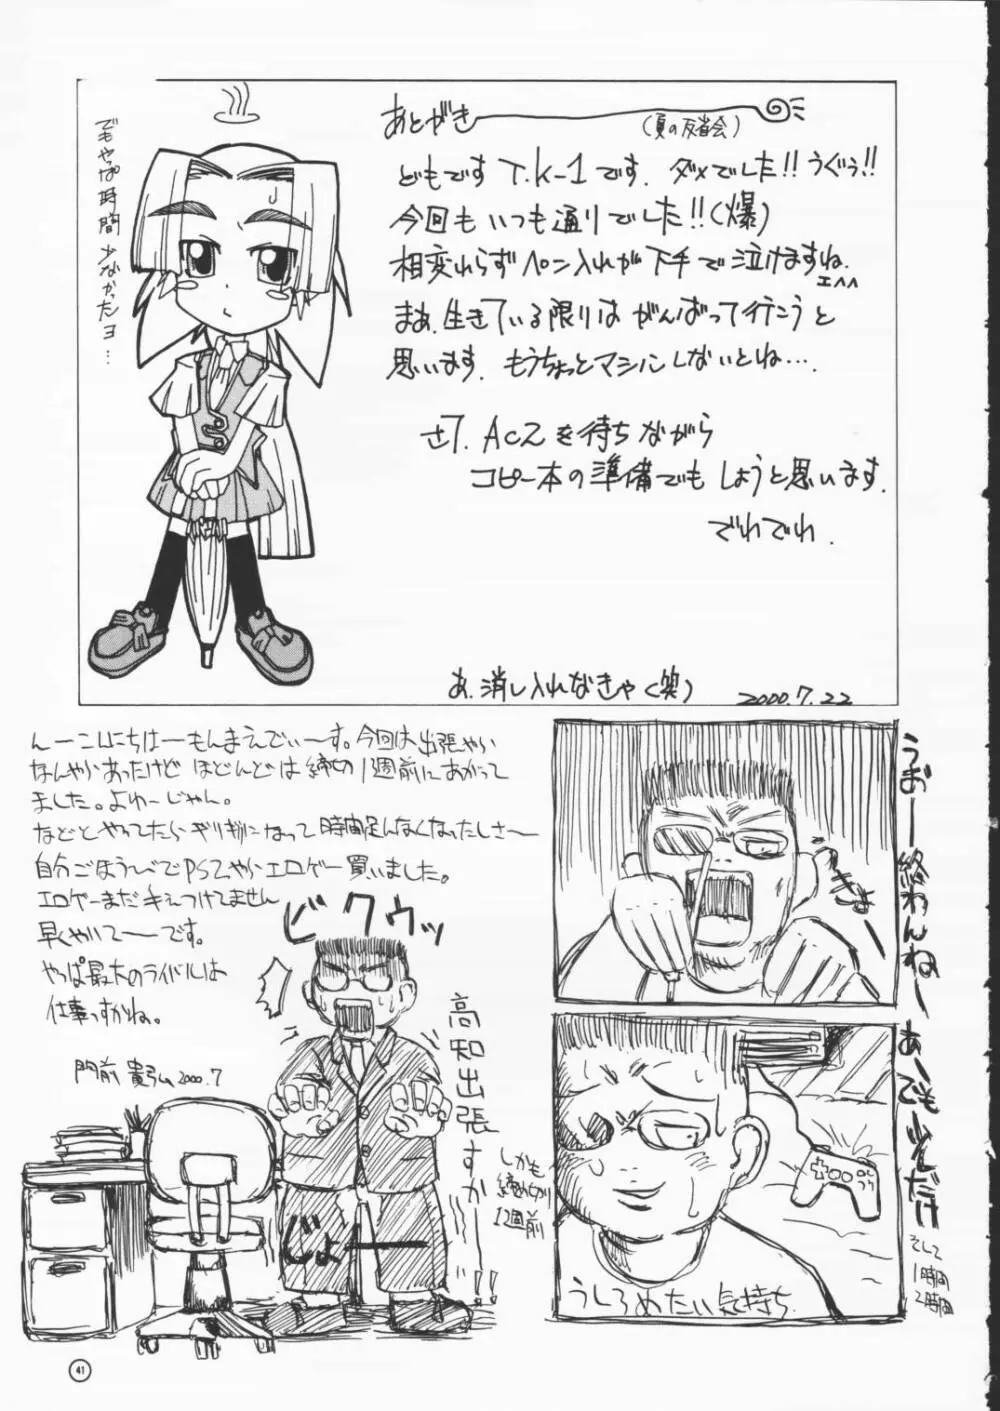 あとがき
(夏の反省会)
どもです T.K-1です. ダメでした!! うぐぅ!!
今回も いつも通りでした!!(爆)
相変わらずペン入れが下手で泣けますね.
エヘヘ
まぁ.生きている限りは がんばって行こうと
思います. もうちょっとマシにしないとね…
さて. AC2 を待ちながら
コピー本の準備でも しようと思います.
でわでわ.
でもやっぱ時間少なかったヨ…
あ.消し入れなきゃ(笑)
2000.7.22
んーこんにちはーもんまえでぃーす。今回は出張やら
なんやらあったけど ほとんどは 締切1週前にあがって
ました。よゆーじゃん。
などとやってたらギリギリになって 時間足んなくなったしさー
自分ごほうびでPS2やらエロゲー買いました。
エロゲーまだ手えつけてません
早くやいてーです。
やっぱ最大のライバルは
仕事っすかね。
門前 貴弘 2000.7
ビクウッ
高知出張すか!!
しかも
締め切り
1週前
じょーー
うおー終わんねー
あーでも少しだけ
そして
1時間
2時間
うしろめたい気持ち
41